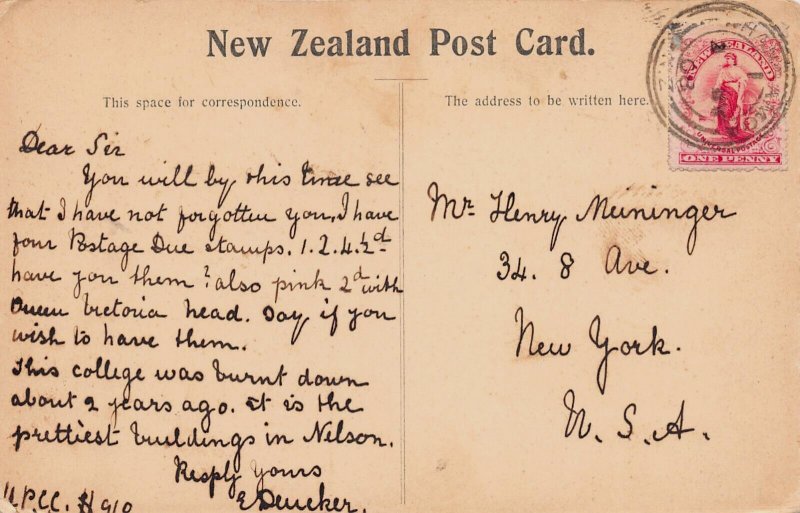 New Zealand Post Card.
This space for correspondence.
The address to be written here.
NEW ZEALAND
UNIVERSAL POSTAGE
ONE PENNY
Dear Sir
You will by this time see
that I have not forgotten you, I have
four Postage Due stamps. 1.2.4.½d
have you them? also pink 2d with
Queen Victoria head. Say if you
wish to have them.
This college was burnt down
about 2 years ago. it is the
prettiest buildings in Nelson.
Resply Yours
E Deucker.
Mr Henry Meininger
34. 8 Ave.
New York.
U. S. A.